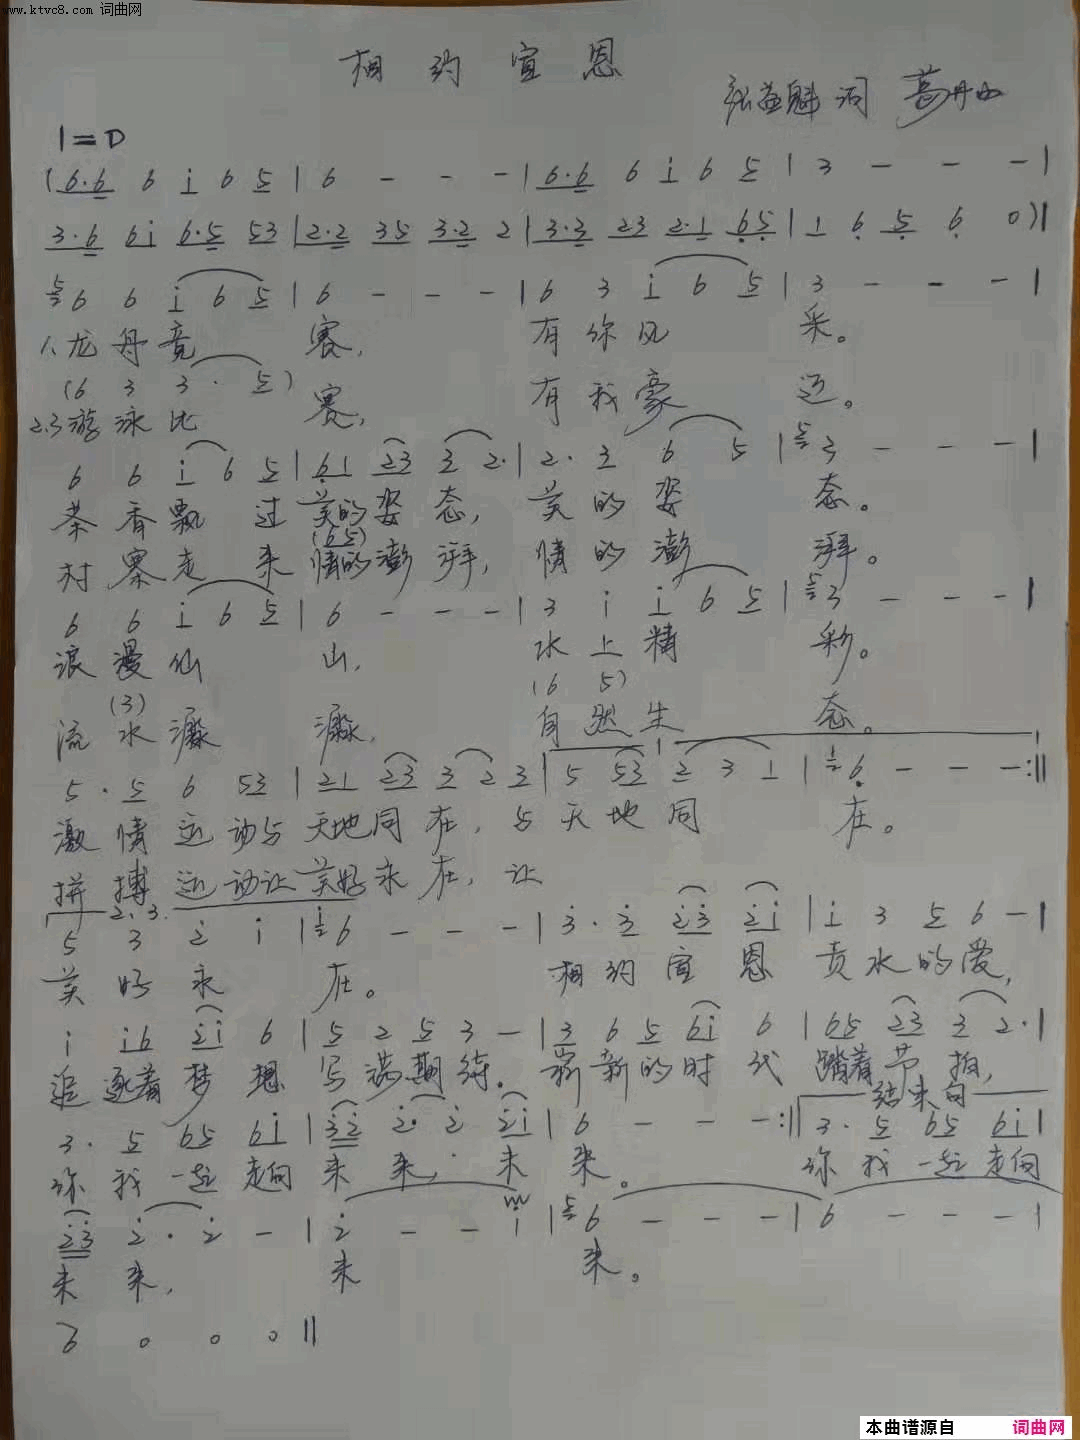 www.ktvc8.com 词曲网
相约宣恩
张益魁词 葛丹
1=D
(6·6 6 i 6 5 | 6 - - - | 6·6 6 i 6 5 | 3 - - - |
3·6 6i 6·5 53 | 2·2 35 3·2 2 | 3·3 23 2·1 65 | 1 6 5 6 0)|
5 6 6 i 6 5 | 6 - - - | 6 3 i 6 5 | 3 - - - |
1、龙舟竞 赛, 有你风 采。
(6 3 3· 5)
2.3游泳比 赛, 有我豪 迈。
6 6 i 6 5 | 61 23 3 2· | 2· 3 6 5 | 5 3 - - - |
茶香飘过美的姿态, 美的姿 态。
(65)
村寨走来情的澎湃, 情的澎 湃。
6 6 i 6 5 | 6 - - - | 3 i i 6 5 | 5 3 - - - |
浪漫仙 山, 水上精 彩。
(3) (6 5)
流水潺 潺, 自然生 态。
1
5· 5 6 53 | 21 23 3 2 3 | 5 53 2 3 1 | 1 6 - - - :||
激情运动与天地同在, 与天地同 在。
拼搏运动让美好永在, 让
2、3.
5 3 2 i | i 6 - - - | 3· 3 23 2i | i 3 5 6 - |
美好永 在。 相约宣恩 贡水的爱,
i i6 2i 6 | 5 2 5 3 - | 3 6 5 6i 6 | 65 23 3 2· |
追逐着梦想 写满期待。 崭新的时代 踏着节拍,
结束句
3· 5 65 6i | 32 2· 2 2i | 6 - - - :|| 3· 5 65 6i |
你我一起走向未来, 未 来。 你我一起走向
23 2· 2 - | 2 - - i | 5 6 - - - | 6 - - - |
未来, 未 来。
6 0 0 0 ||
本曲谱源自 词曲网